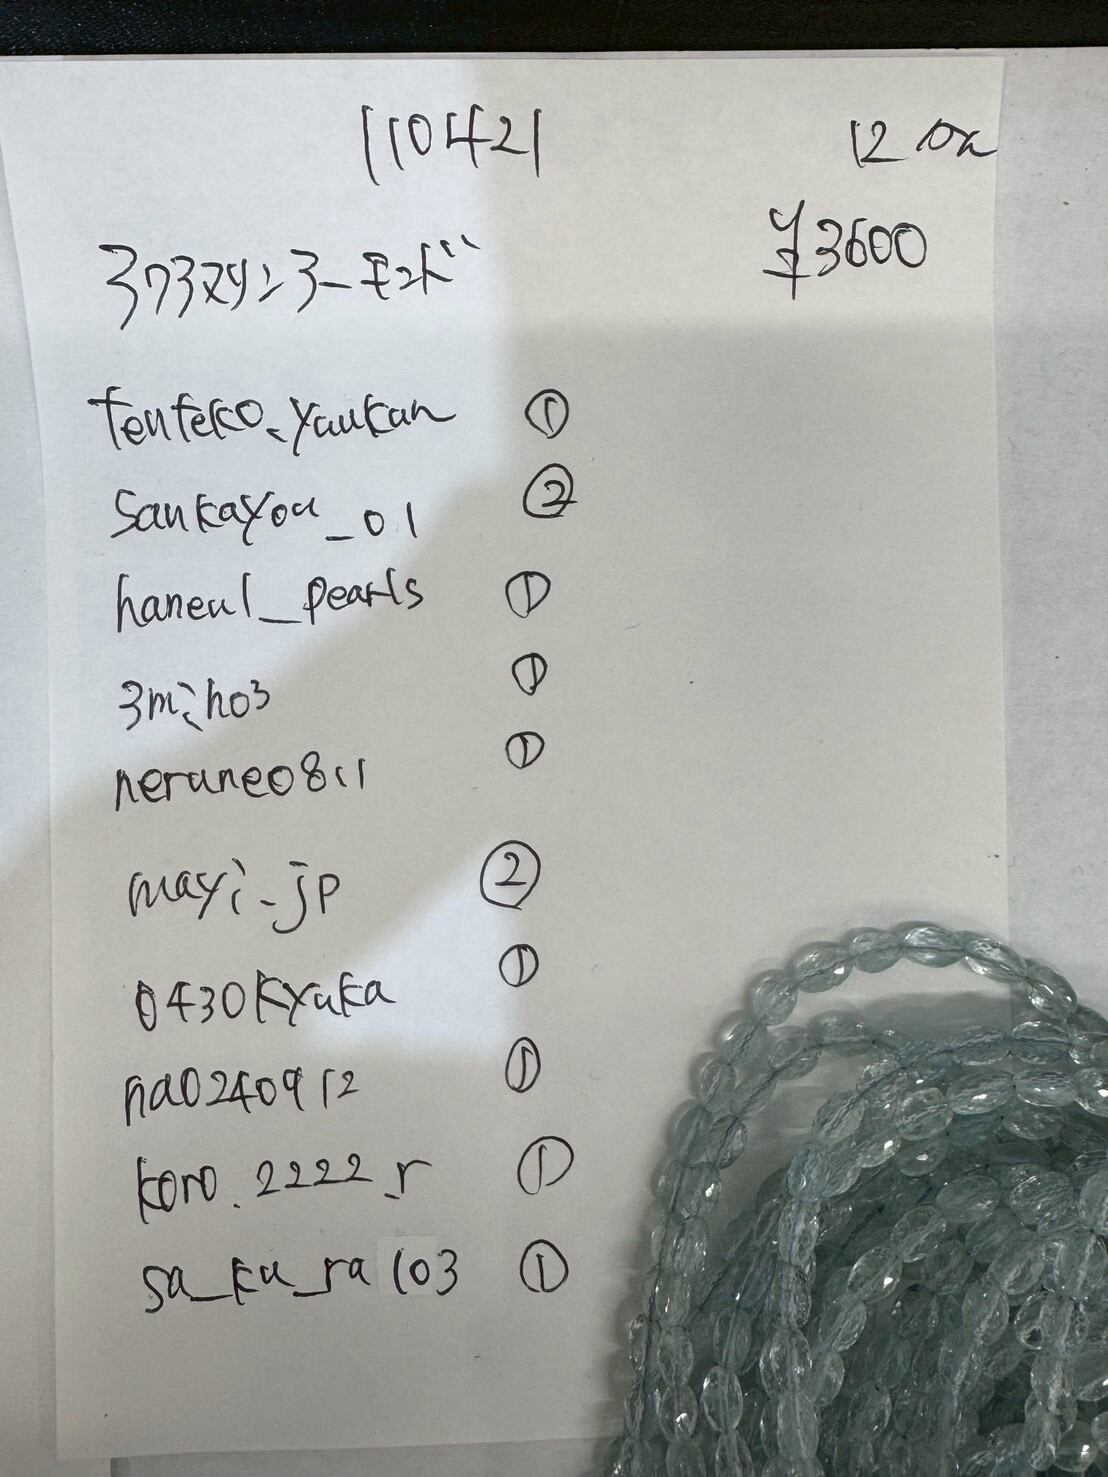 110421
12 pcs
¥3600
アクアマリンアーモンド
tenteko.yaukan ①
sankayou_01 ②
haneul_pearls ①
3miho3 ①
nerune0811 ①
mayi_jp ②
0430kyuka ①
na0240912 ①
koro.2222_r ①
sa_ku_ra103 ①